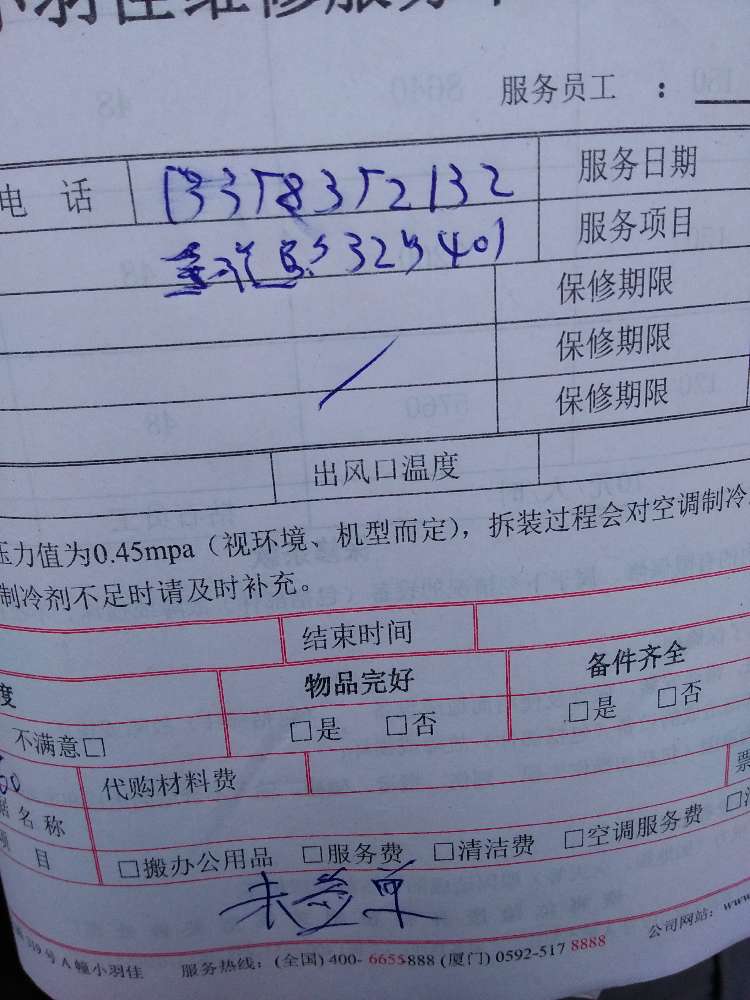 小羽佳维修服务
服务员工 ：
电 话 13358352132 服务日期
32号401 服务项目
保修期限
保修期限
保修期限
出风口温度
压力值为0.45mpa（视环境、机型而定），拆装过程会对空调制冷
制冷剂不足时请及时补充。
结束时间
度 物品完好 备件齐全
不满意□ □是 □否 □是 □否
代购材料费 票
据名称
项 目 □搬办公用品 □服务费 □清洁费 □空调服务费 □
未签单
319号A幢小羽佳 服务热线：(全国) 400- 6655888 (厦门) 0592-517 8888 公司网站：www